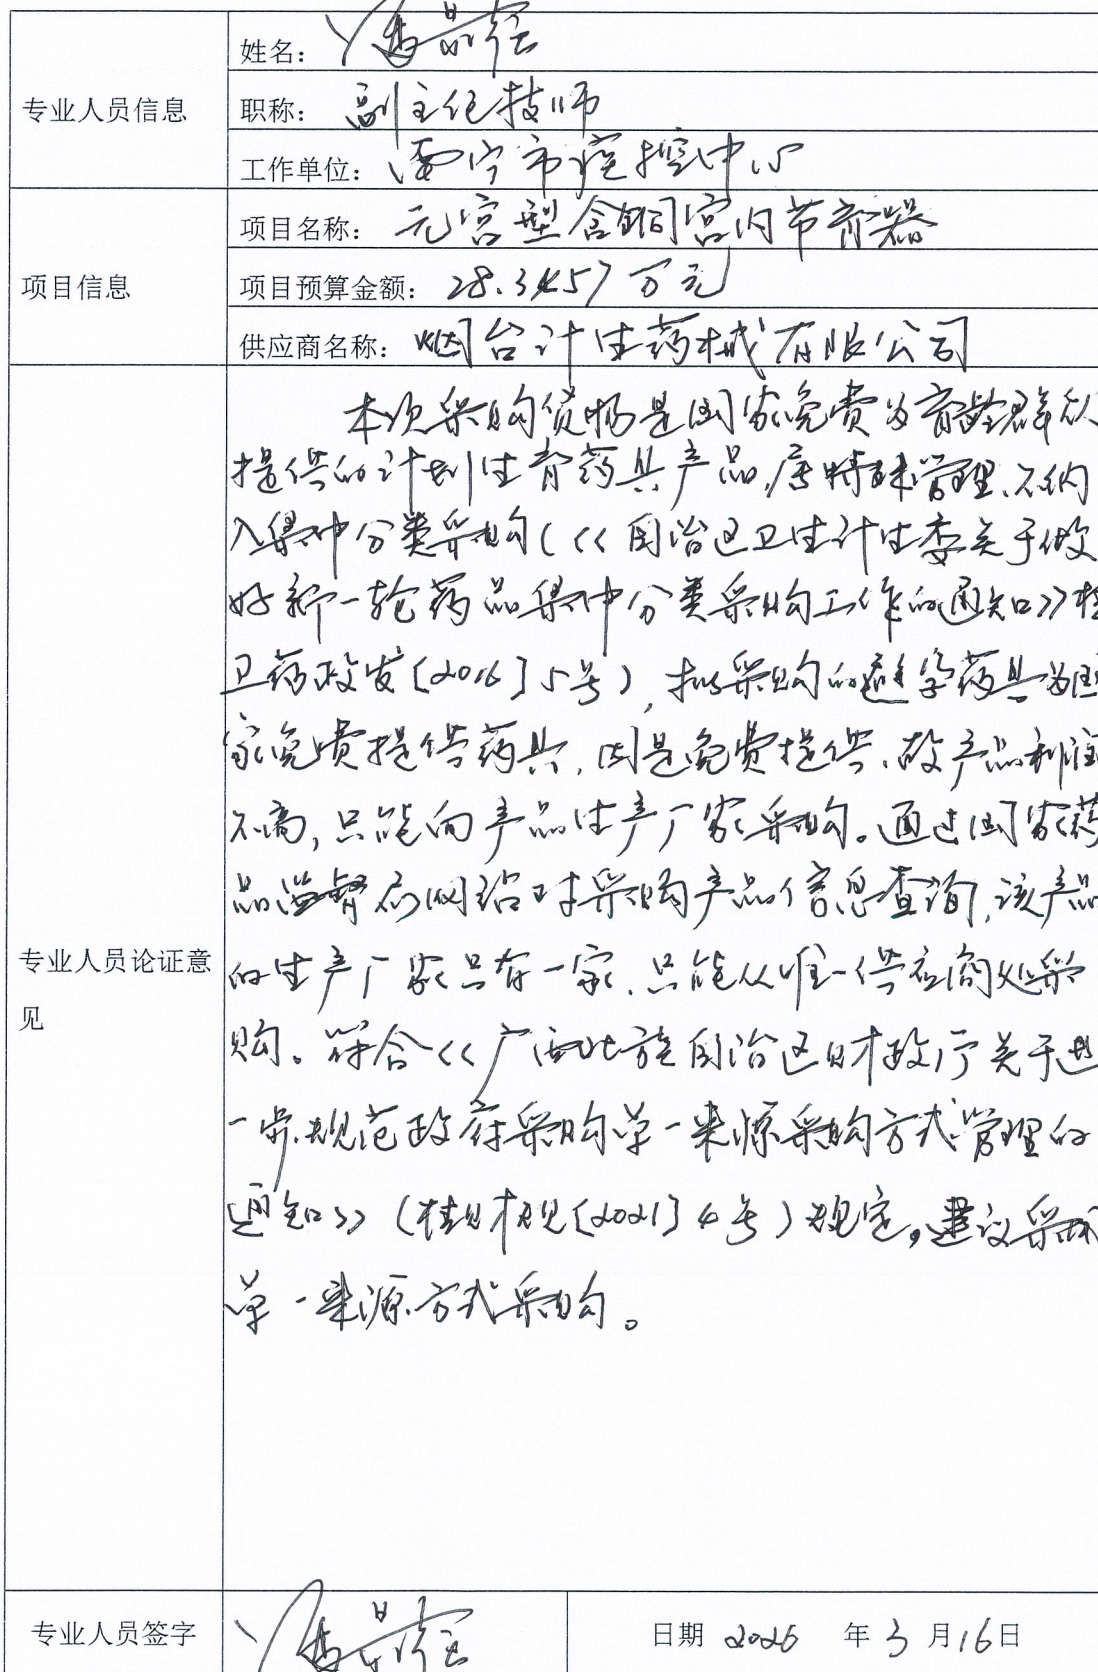 专业人员信息
姓名：潘
职称：副主任技师
工作单位：南宁市疾控中心
项目信息
项目名称：元宫型含铜宫内节育器
项目预算金额：28.3457万元
供应商名称：烟台计生药械有限公司
专业人员论证意
见
本次采购货物是国家免费为育龄群众
提供的计划生育药具产品，属特殊管理、不纳
入集中分类采购（《自治区卫生计生委关于做
好新一轮药品集中分类采购工作的通知》桂
卫药政发〔2016〕5号），拟采购的避孕药具为国
家免费提供药具，因是免费提供、故产品利润
不高，只能向产品生产厂家采购。通过国家药
品监督局网站对采购产品信息查询，该产品
的生产厂家只有一家、只能从唯一供应商处采
购。符合《广西壮族自治区财政厅关于进
一步规范政府采购单一来源采购方式管理的
通知》（桂财规〔2021〕4号）规定，建议采用
单一来源方式采购。
专业人员签字 潘
日期 2026 年 3 月 16 日